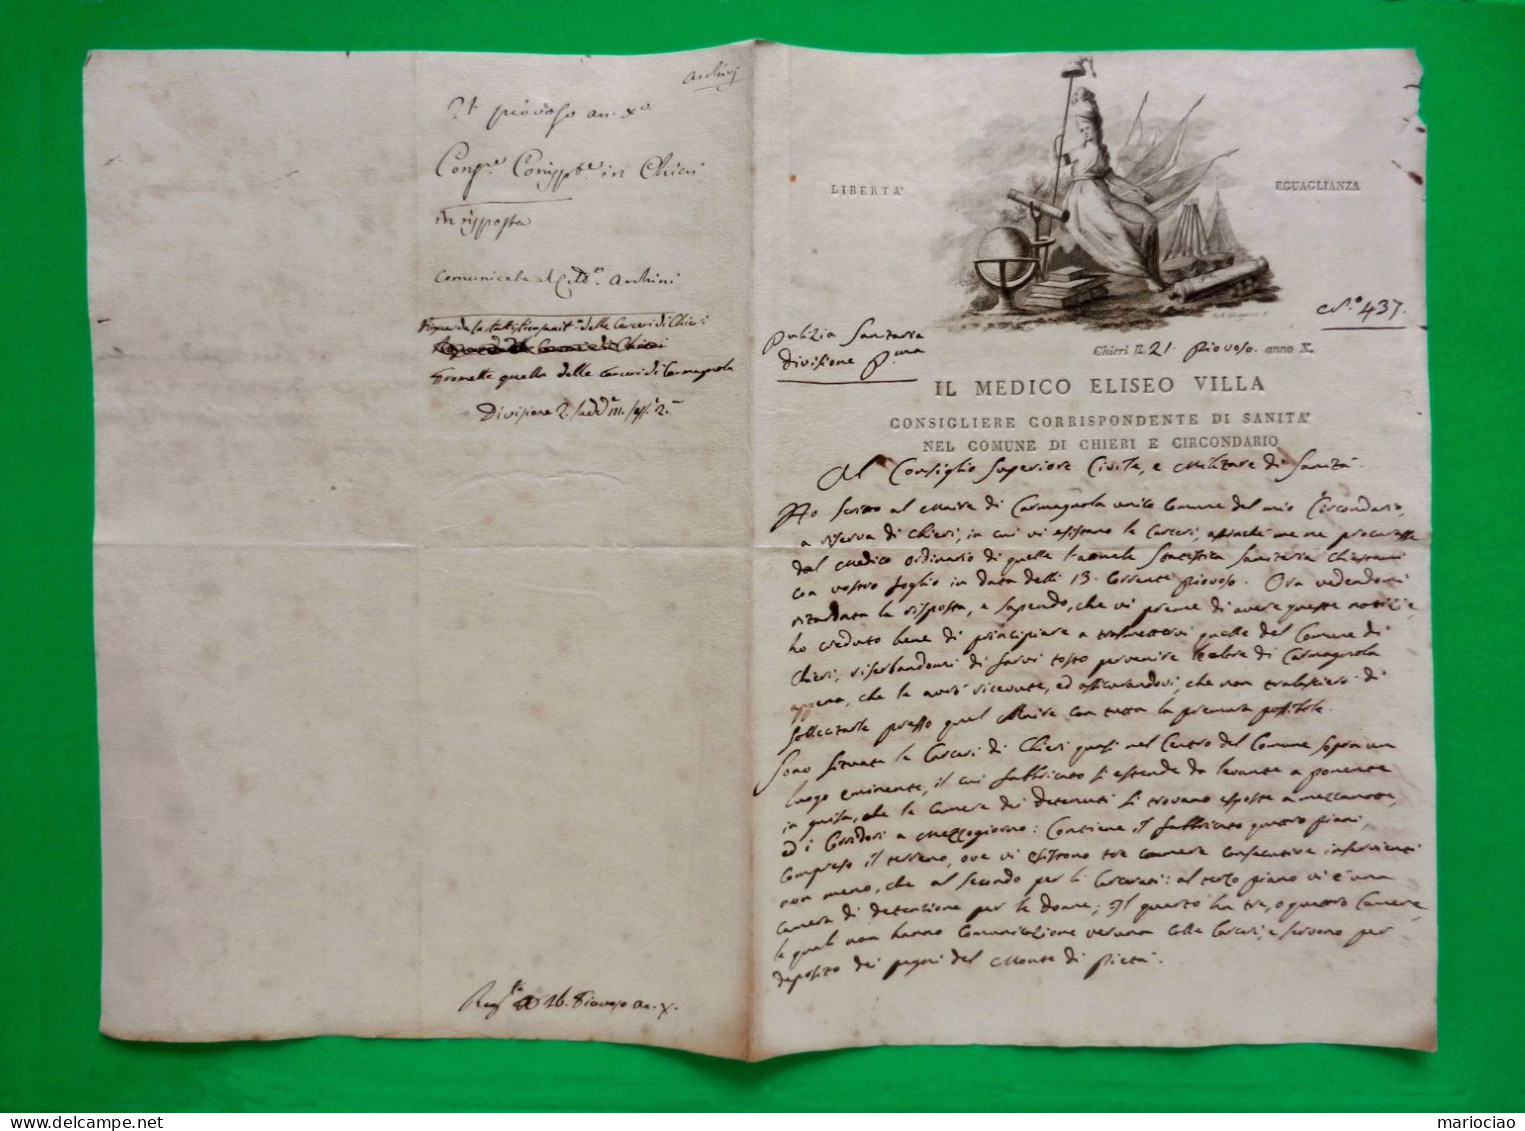 21 piovoso an. X.o
Chieri
in risposta
Comunicata al Citt.e Audrini
Riguarda la delle Carceri di Chieri
Promette quella delle Carceri di Carmagnola
Divisione 2.
16. Piovoso an. X.
LIBERTA'
EGUAGLIANZA
N.o 437.
Pulizia Sanitaria
divisione P.ma
Chieri li 21. Piovoso. anno X.
IL MEDICO ELISEO VILLA
CONSIGLIERE CORRISPONDENTE DI SANITA'
NEL COMUNE DI CHIERI E CIRCONDARIO
Al Consiglio Superiore Civile, e Militare di Sanità.
Ho scritto al Maire di Carmagnola unico Comune del mio Circondario,
a riserva di Chieri, in cui vi esistano le Carceri, affinché me ne procurasse
dal Medico ordinario di quelle l'annale Statistica Sanitaria chiestami
con vostro foglio in data delli 13. corrente Piovoso. Ora vedendomi
ritardata la risposta, e sapendo, che vi preme di avere queste notizie,
ho creduto bene di principiare a trasmettervi quelle del Comune di
Chieri, riserbandomi di farvi tosto pervenire le altre di Carmagnola
appena, che le avrò ricevute, ed assicurandovi, che non tralascierò di
sollecitarle presso quel Maire con tutta la premura possibile.
Sono situate le Carceri di Chieri quasi nel Centro del Comune sopra un
luogo eminente, il cui fabbricato si estende da levante a ponente
in guisa, che le camere dei detenuti si trovano esposte a mezzanotte,
ed i Corridori a Mezzogiorno: Contiene il fabbricato quattro piani,
compreso il terreno, ove vi esistono tre camere consecutive inservienti
non meno, che al secondo per li Carcerati: al terzo piano vi è una
camera di detenzione per le donne; Il quarto ha tre, o quattro Camere,
le quali non hanno comunicazione veruna colle Carceri, e servono per
deposito dei pegni del Monte di Pietà.
mariociao